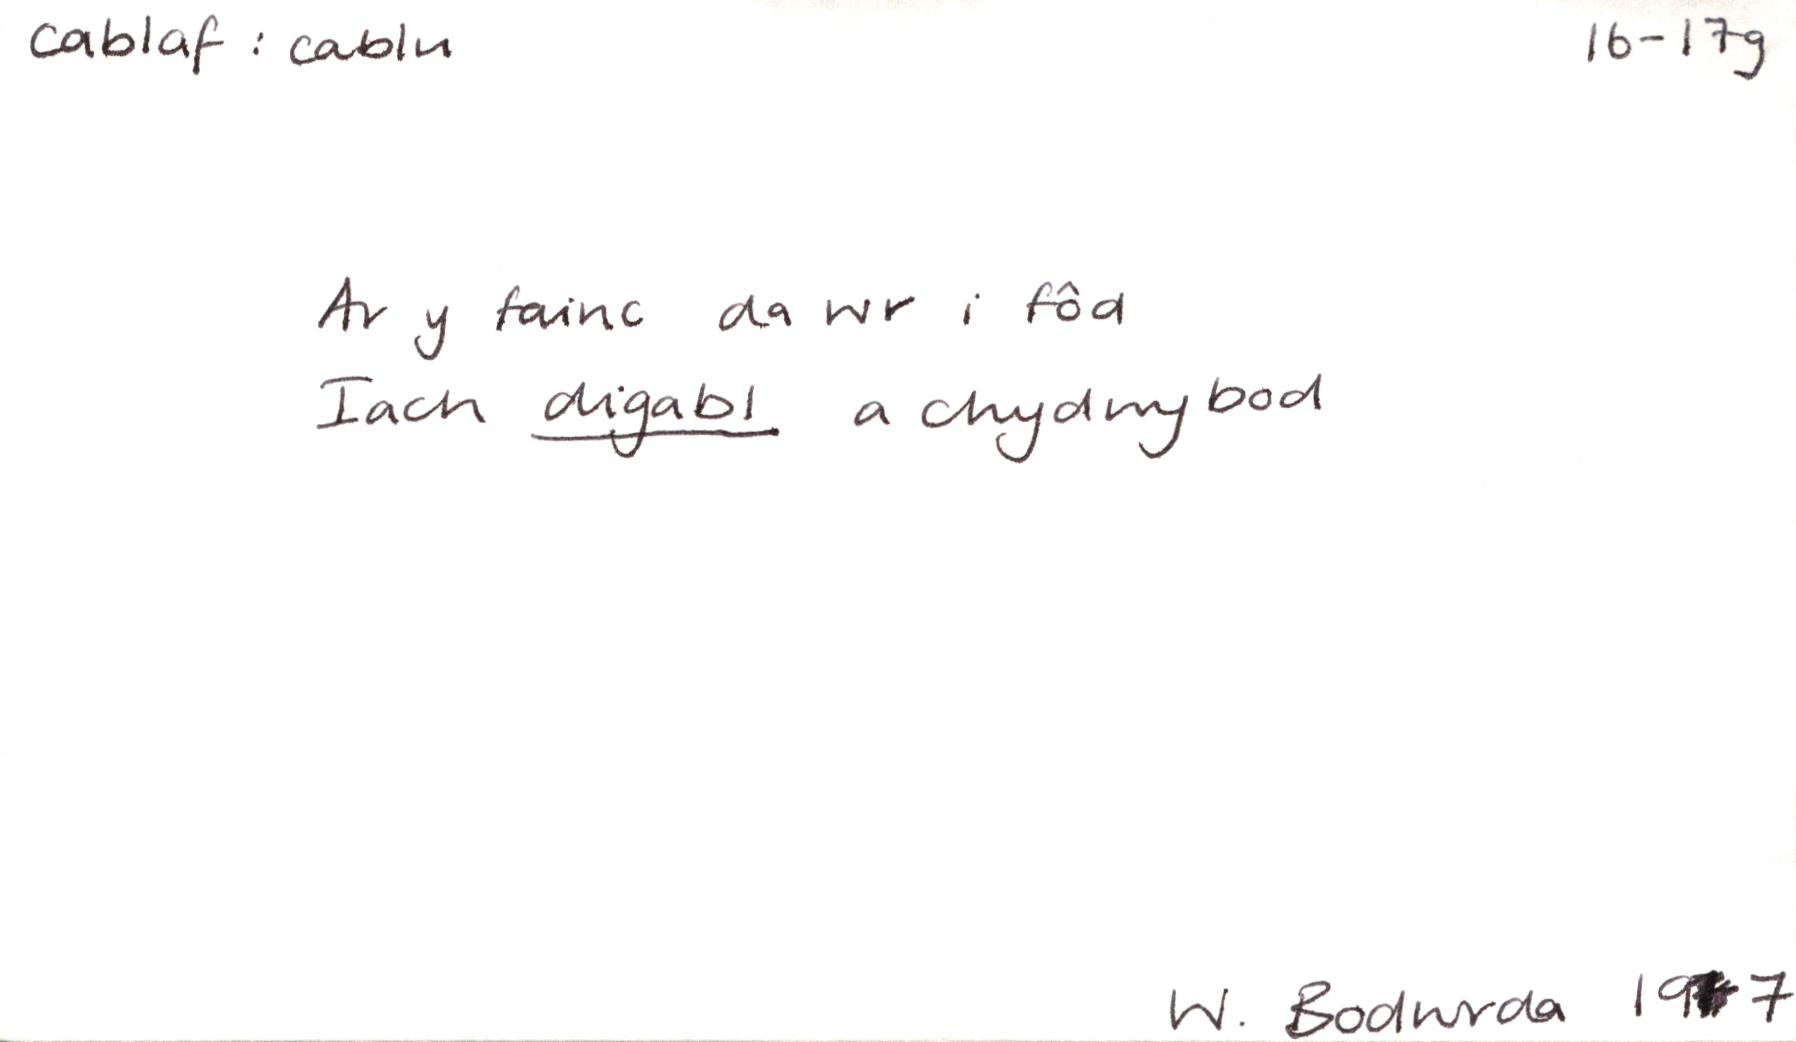 cablaf : cablu 16-17g
Ar y fainc da wr i fôd
Iach digabl a chydwybod
W. Bodwrda 197